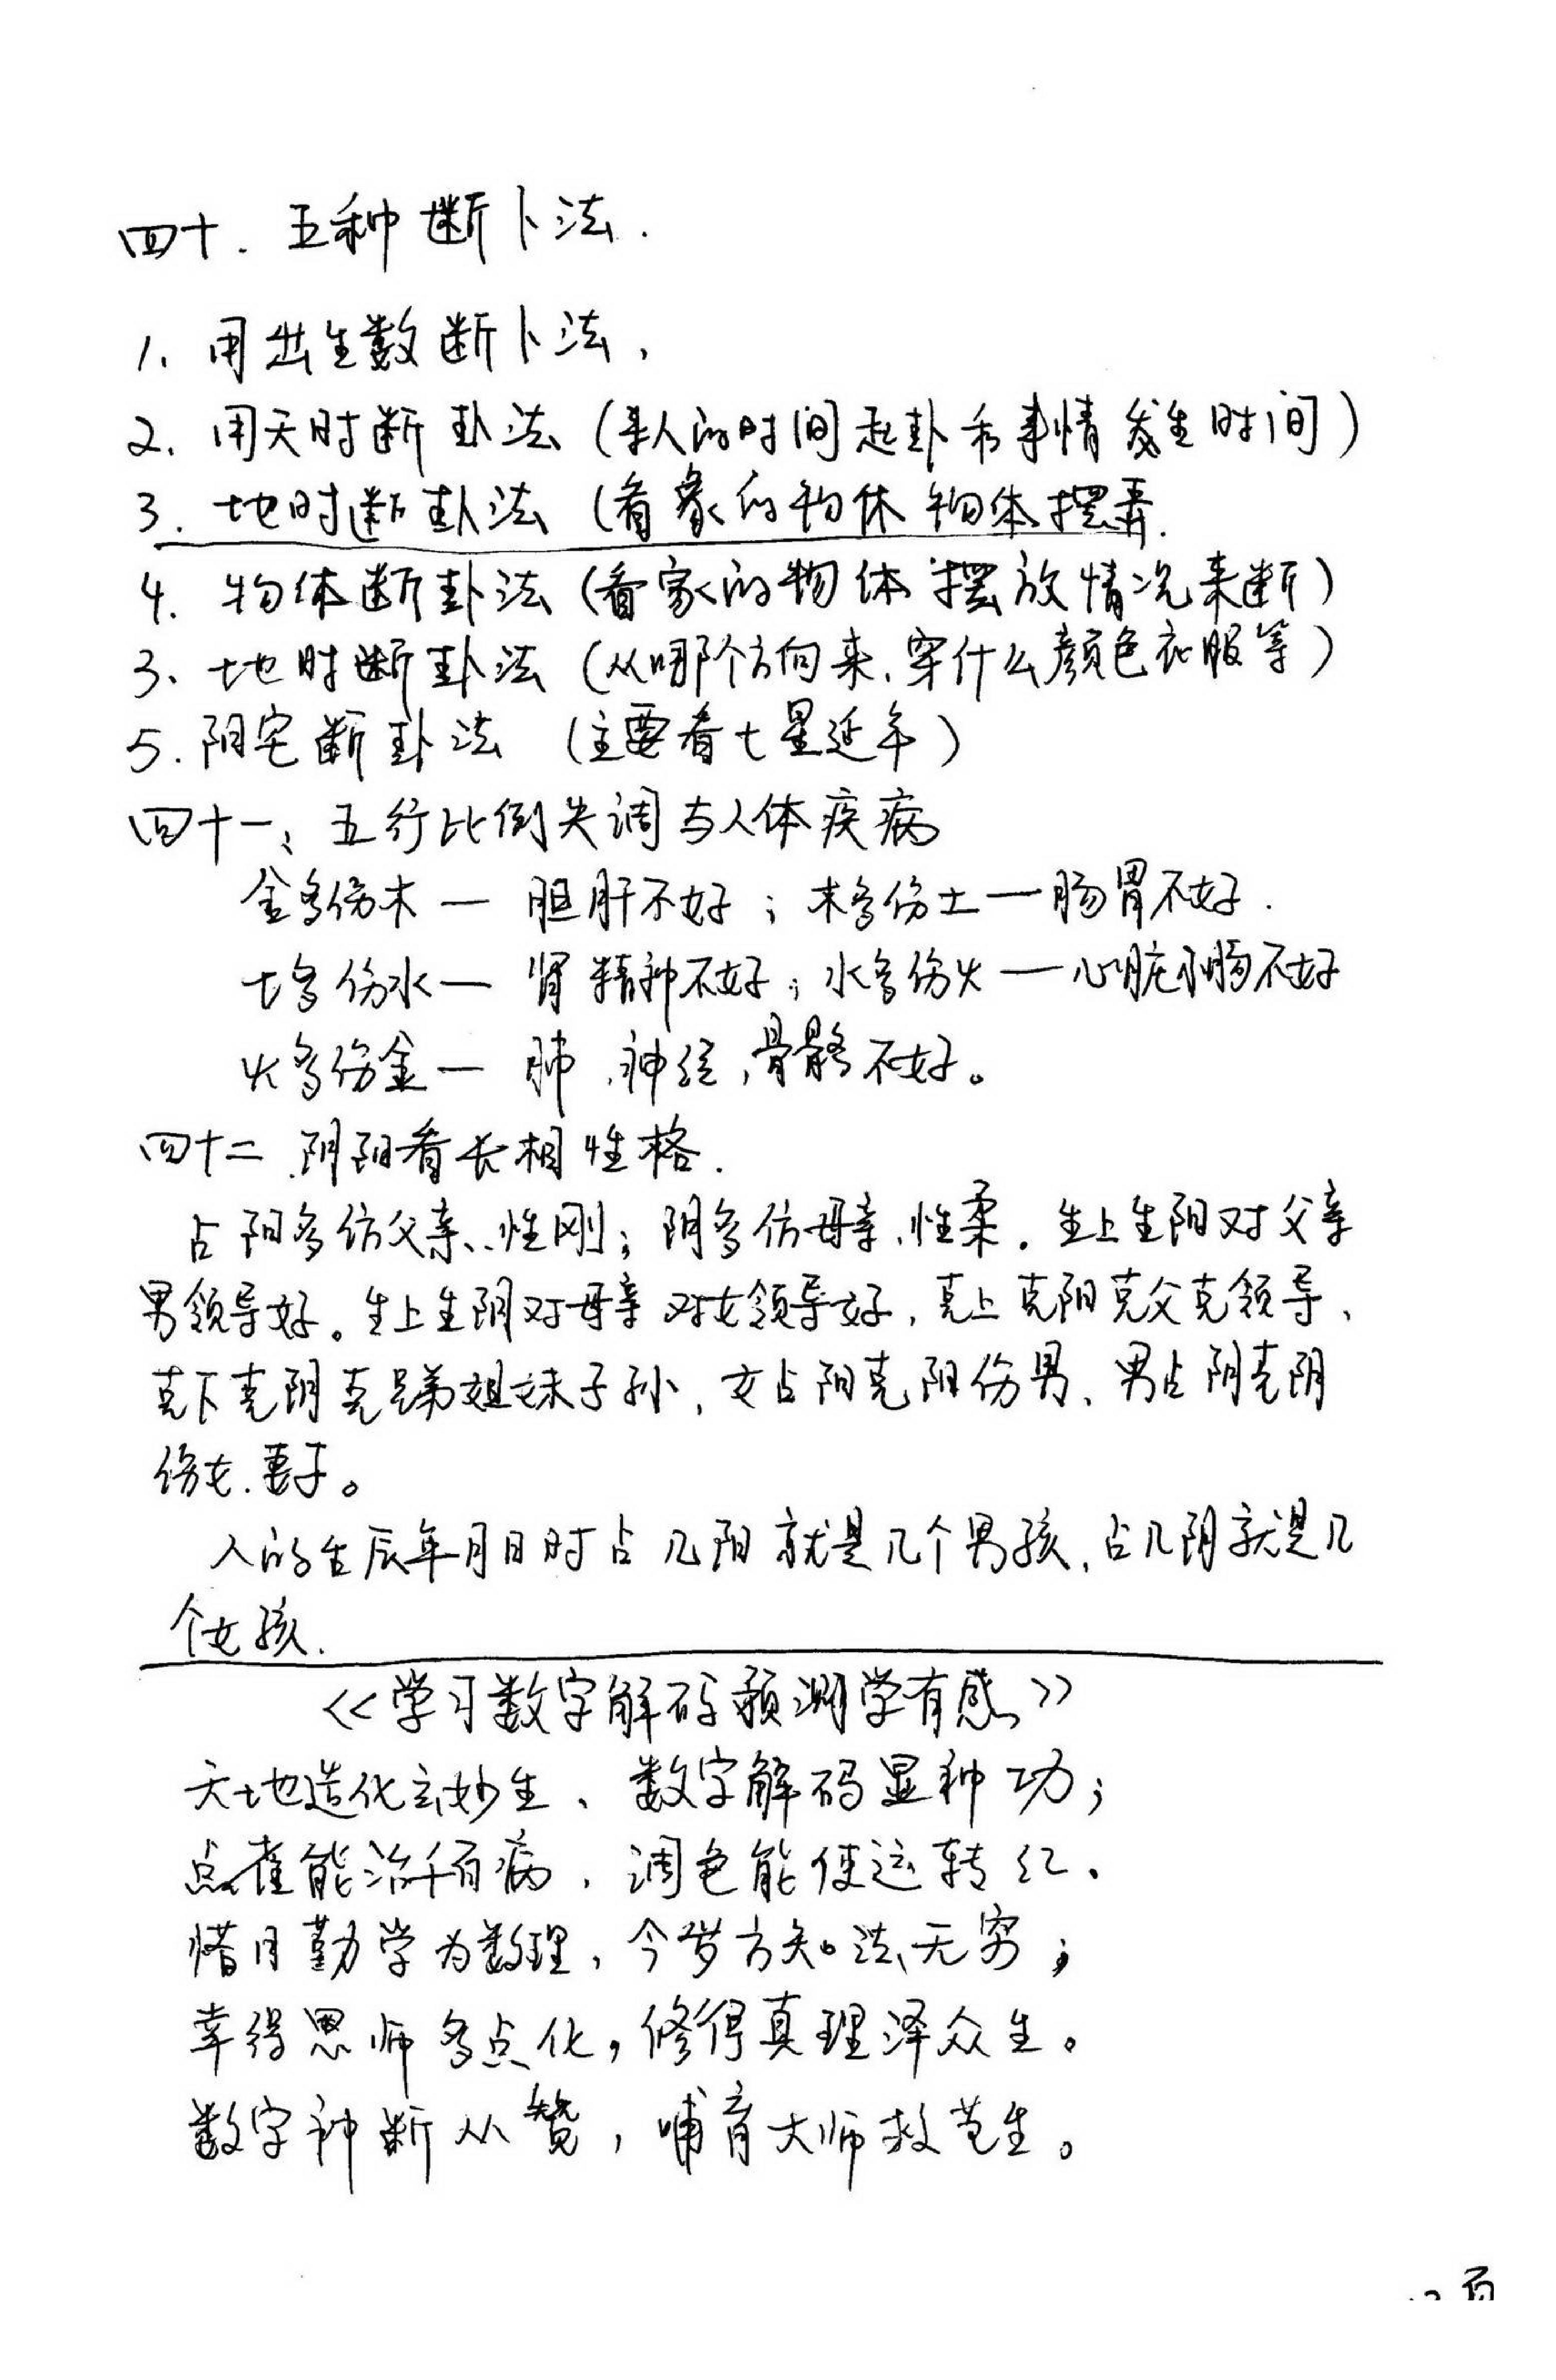 四十. 五种断卜法.
1、用出生数断卜法,
2、用天时断卦法 (来人的时间起卦和事情发生时间)
3. 地时断卦法 (看家的物体物体摆弄.
4. 物体断卦法 (看家的物体摆放情况来断)
3、地时断卦法 (从哪个方向来.穿什么颜色衣服等)
5. 阳宅断卦法 (主要看七星延年)
四十一、五行比例失调与人体疾病
金多伤木一 胆肝不好; 木多伤土一肠胃不好.
土多伤水一 肾精神不好; 水多伤火一心脏 不好
火多伤金一 肺、神经,骨骼不好。
四十二.阴阳看长相性格.
占阳多仿父亲、性刚; 阴多仿母亲,性柔. 生上生阳对父亲
男领导好。生上生阴对母亲对女领导好,克上克阳克父克领导、
克下克阴克兄弟姐妹子孙, 女占阳克阳伤男、男占阴克阴
伤女.妻子。
人的生辰年月日时占几阳就是几个男孩,占几阴就是几
个女孩.
<<学习数字解码预测学有感>>
天地造化玄妙生、数字解码显神功;
点 能治千百病, 调色能使运转红、
惜月勤学为数理, 今岁方知法无穷;
幸得恩师多点化,修得真理泽众生。
数字神断从赞, 哺育大师救 生。
页